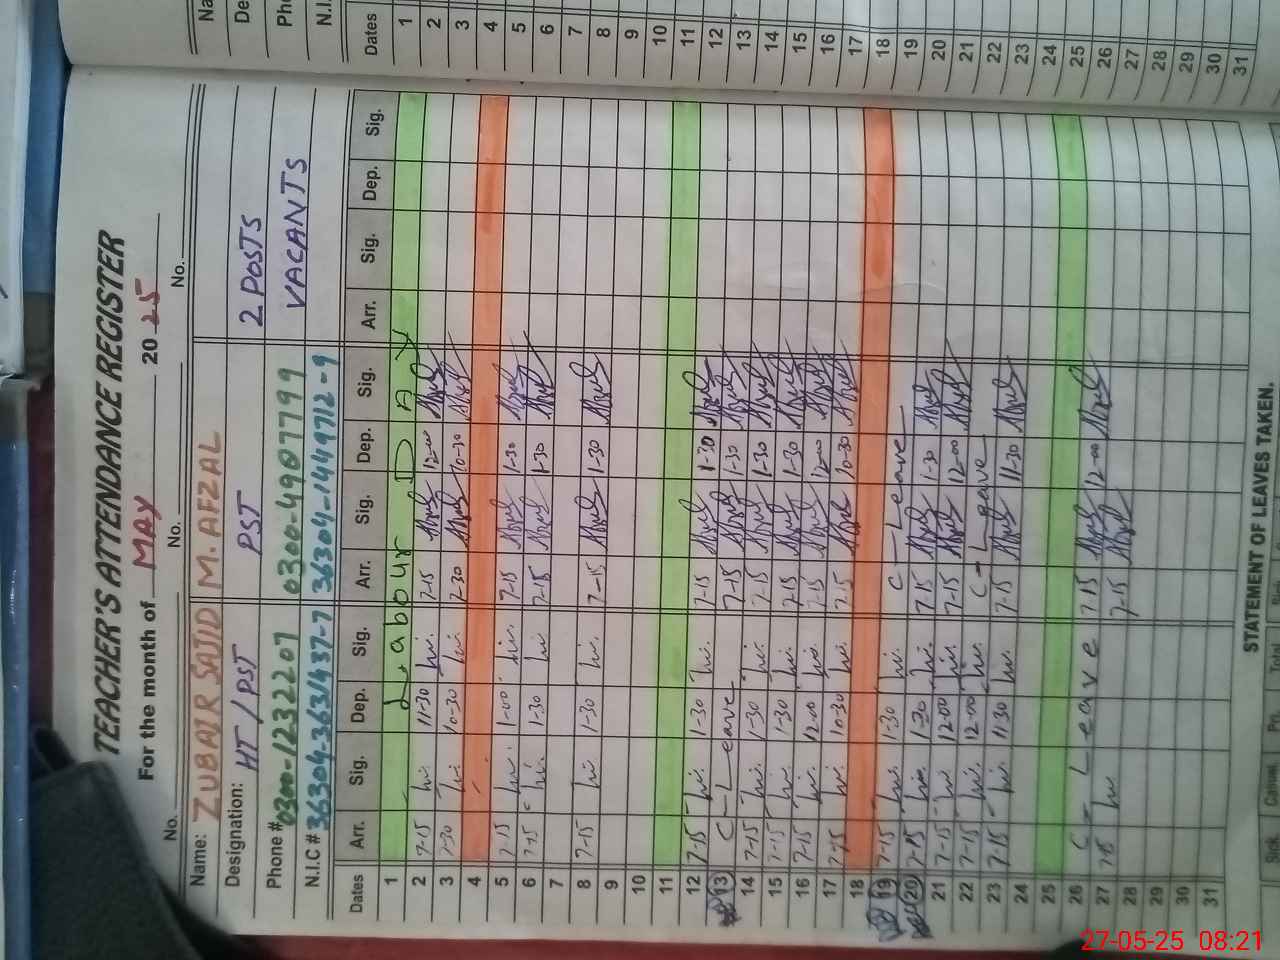 TEACHER'S ATTENDANCE REGISTER
For the month of MAY 2025
No. No. No.
Name: ZUBAIR SAJID M. AFZAL
Designation: HT / PST PST 2 POSTS
Phone # 0300-1232207 0300-4907799 VACANTS
N.I.C # 36304-3631437-7 36304-1449712-9
Dates Arr. Sig. Dep. Sig. Arr. Sig. Dep. Sig. Arr. Sig. Dep. Sig.
1 Labour DAY
2 7-15 11-30 7-15 12-00
3 7-30 10-30 7-30 10-30
4
5 7-15 1-00 7-15 1-30
6 7-15 1-30 7-15 1-30
7
8 7-15 1-30 7-15 1-30
9
10
11
12 7-15 1-30 7-15 1-30
13 C-Leave 7-15 1-30
14 7-15 1-30 7-15 1-30
15 7-15 1-30 7-15 1-30
16 7-15 12-00 7-15 12-00
17 7-15 10-30 7-15 10-30
18
19 7-15 1-30 C-Leave
20 7-15 1-30 7-15 1-30
21 7-15 12-00 7-15 12-00
22 7-15 12-00 C-Leave
23 7-15 11-30 7-15 11-30
24
25
26 C-Leave 7-15 12-00
27 7-15 7-15
28
29
30
31
STATEMENT OF LEAVES TAKEN.
Sick Casual Total
Dates
1
2
3
4
5
6
7
8
9
10
11
12
13
14
15
16
17
18
19
20
21
22
23
24
25
26
27
28
29
30
31
27-05-25 08:21